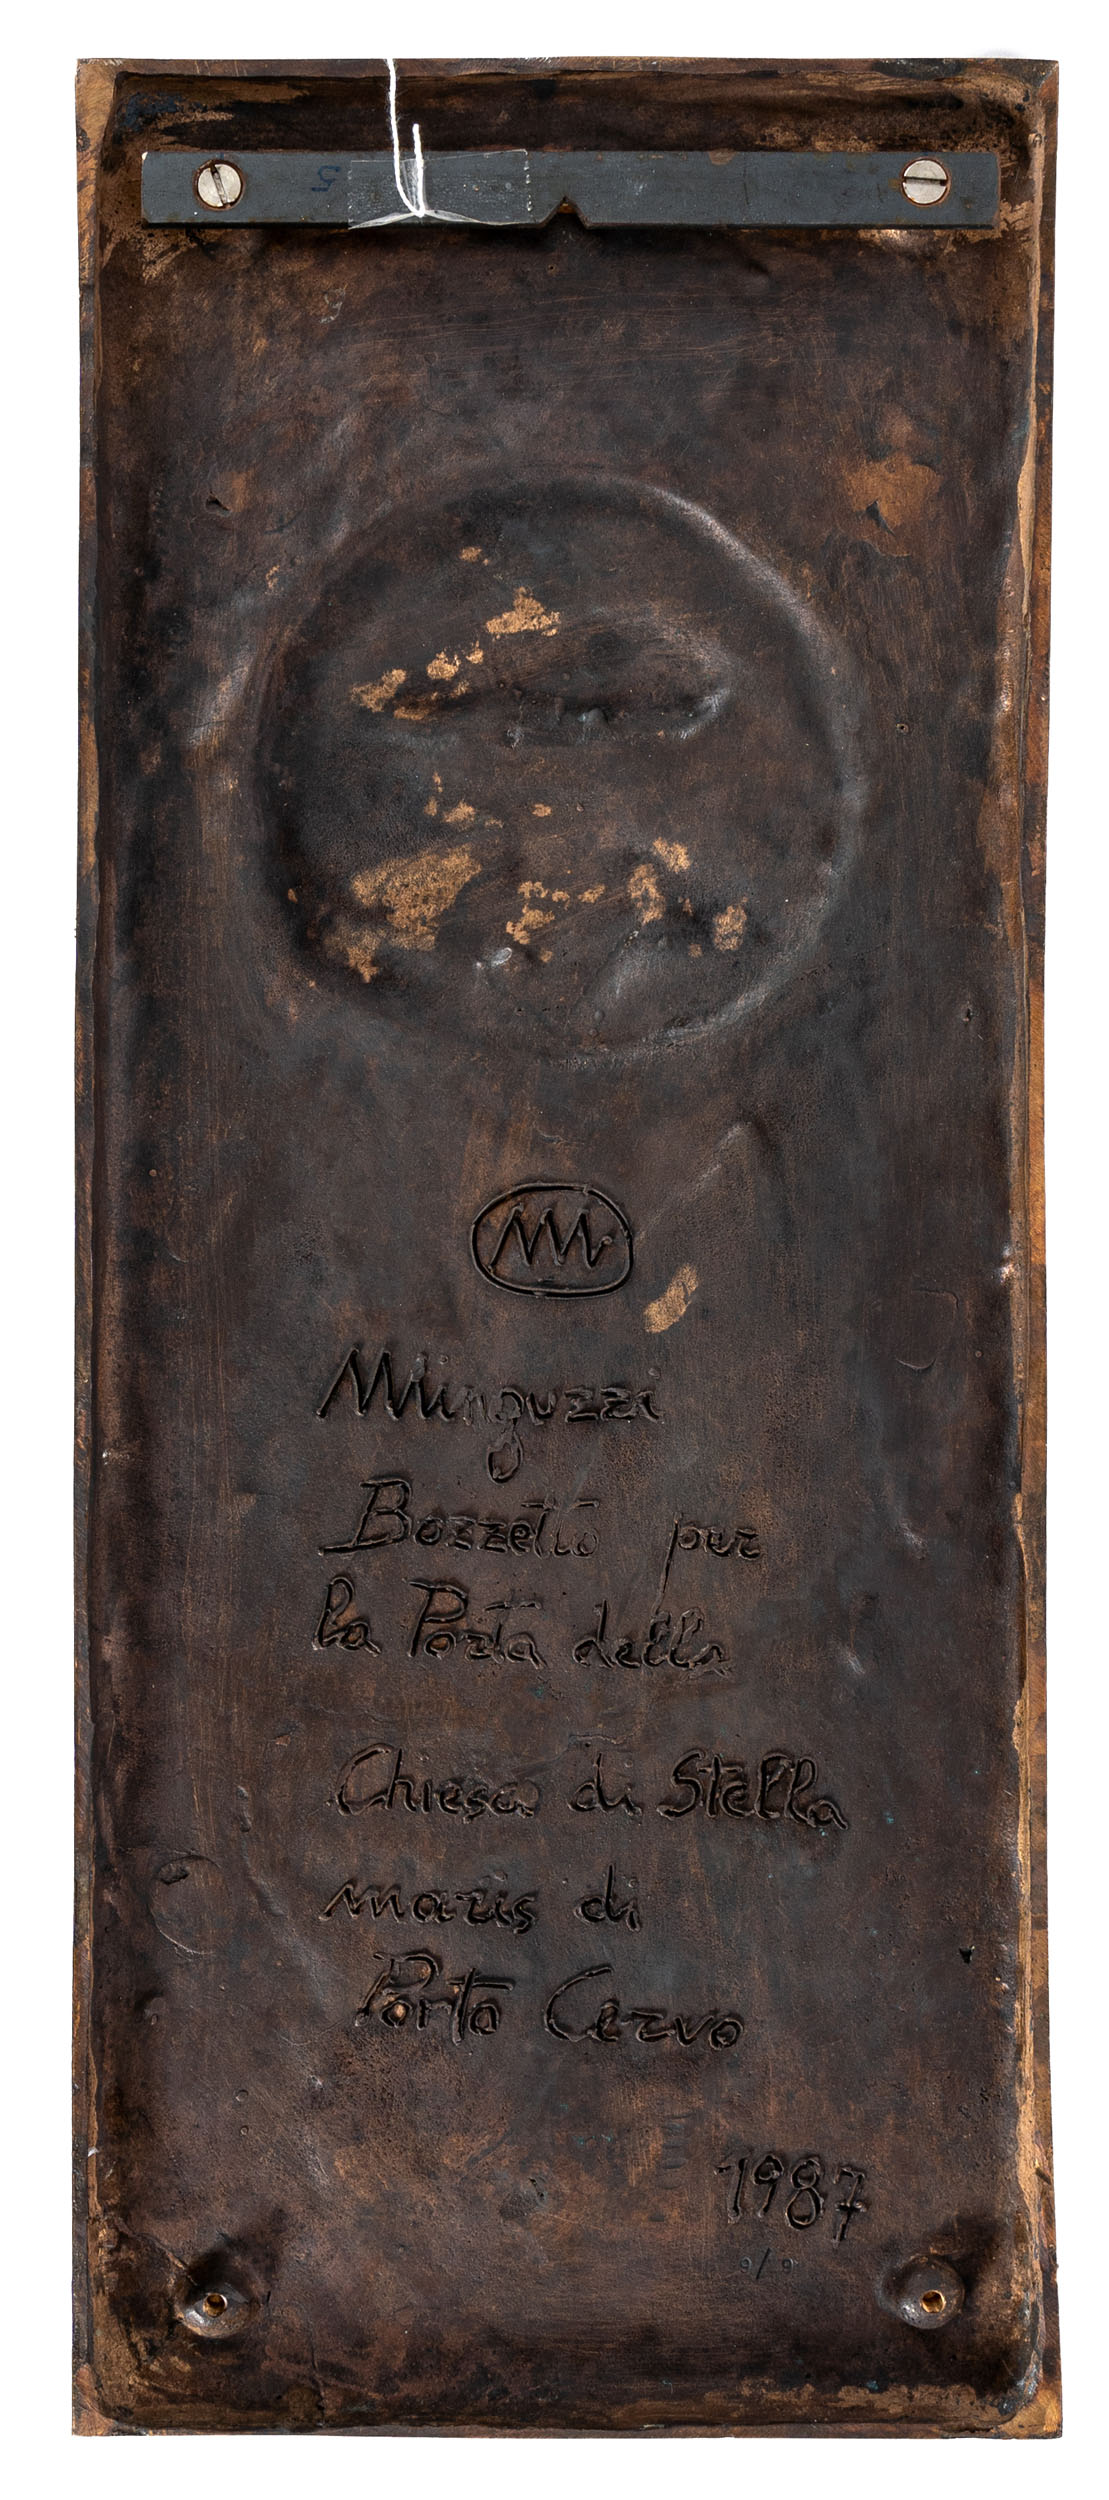 5
MM
Minguzzi
Bozzetto per
la Porta della
Chiesa di Stella
maris di
Porto Cervo
1987
9/9